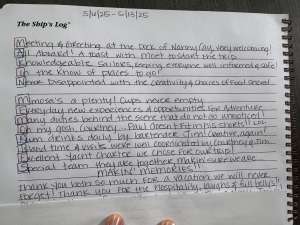 5/4/25 - 5/13/25
The Ship's Log
Meeting & Greeting at the Dock of Nanny Cay, very welcoming!
All Aboard! A toast with meet to start the trip
Knowledgeable Sailors, making everyone well informed & safe
In the know of places to go!
Never Disappointed with the creativity & choices of Food Served
Mimosa's a plenty! Cups never empty
Everyday new experiences & opportunities for Adventure
Many duties behind the scene that do go unnoticed!
Oh my gosh Courtney - Paul doesn't fit in his shorts!! LOL
Rum drinks daily by bartender Tim! Creative again!
Island time & visits were well coordinated by Courtney & Tim
Excellent Yacht Charter we chose for our trip!
Special team they are together, makin' sure we are
MAKIN' MEMORIES!!
Thank you both so much for a vacation we will never
forget! Thank you for the hospitality, laughs & full belly's!!